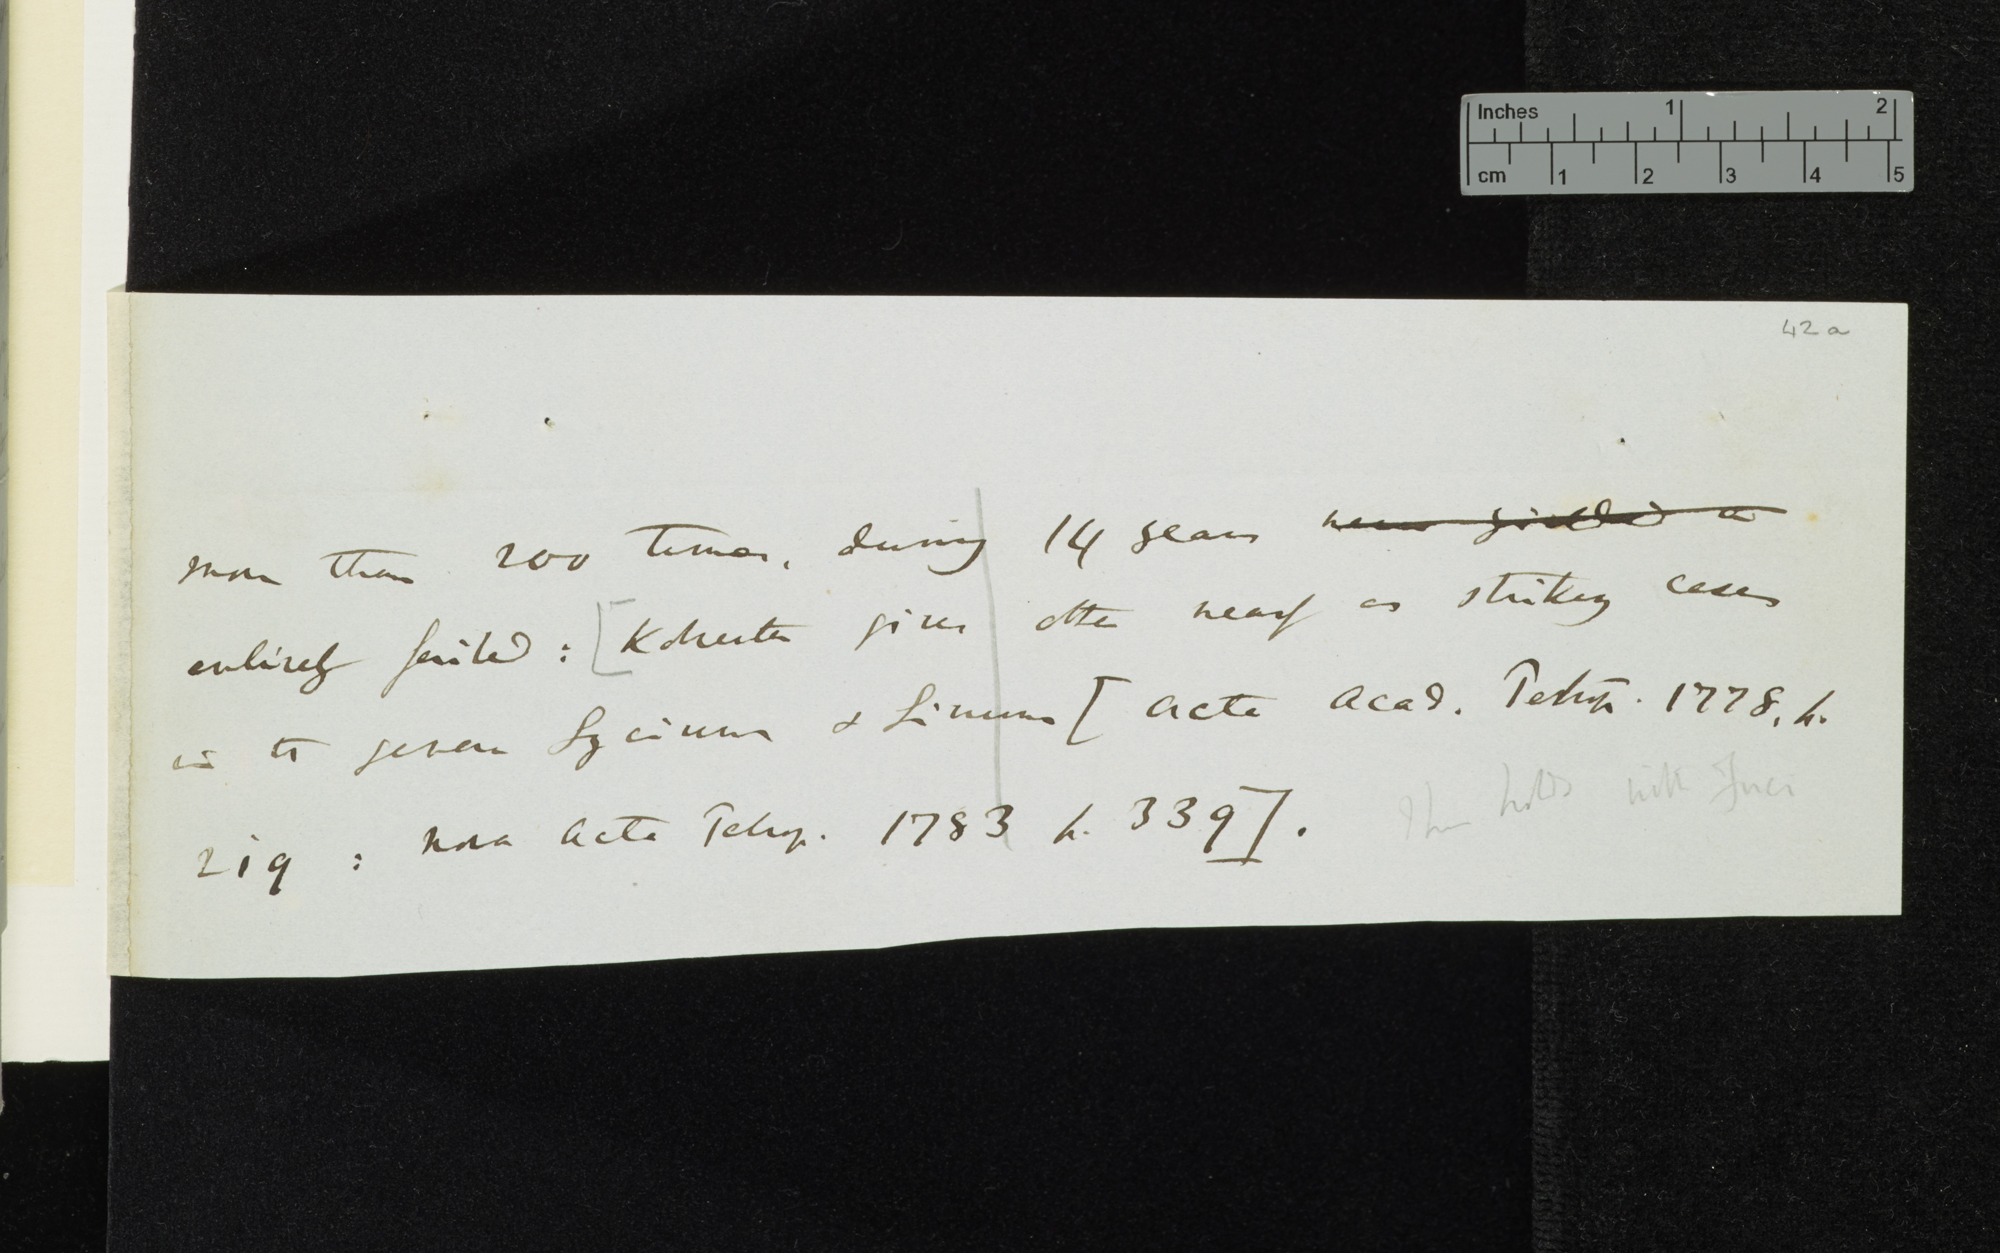 42a
more than 200 times, during 14 years never yielded a
entirely failed : [Kolreuter gives other nearly as striking cases
in the genera Lycium & Linum [Acta Acad. Petrop. 1778, p.
219 : nova Acta Petrop. 1783 p. 339].
holds with Fuci
Inches 1 2
cm 1 2 3 4 5